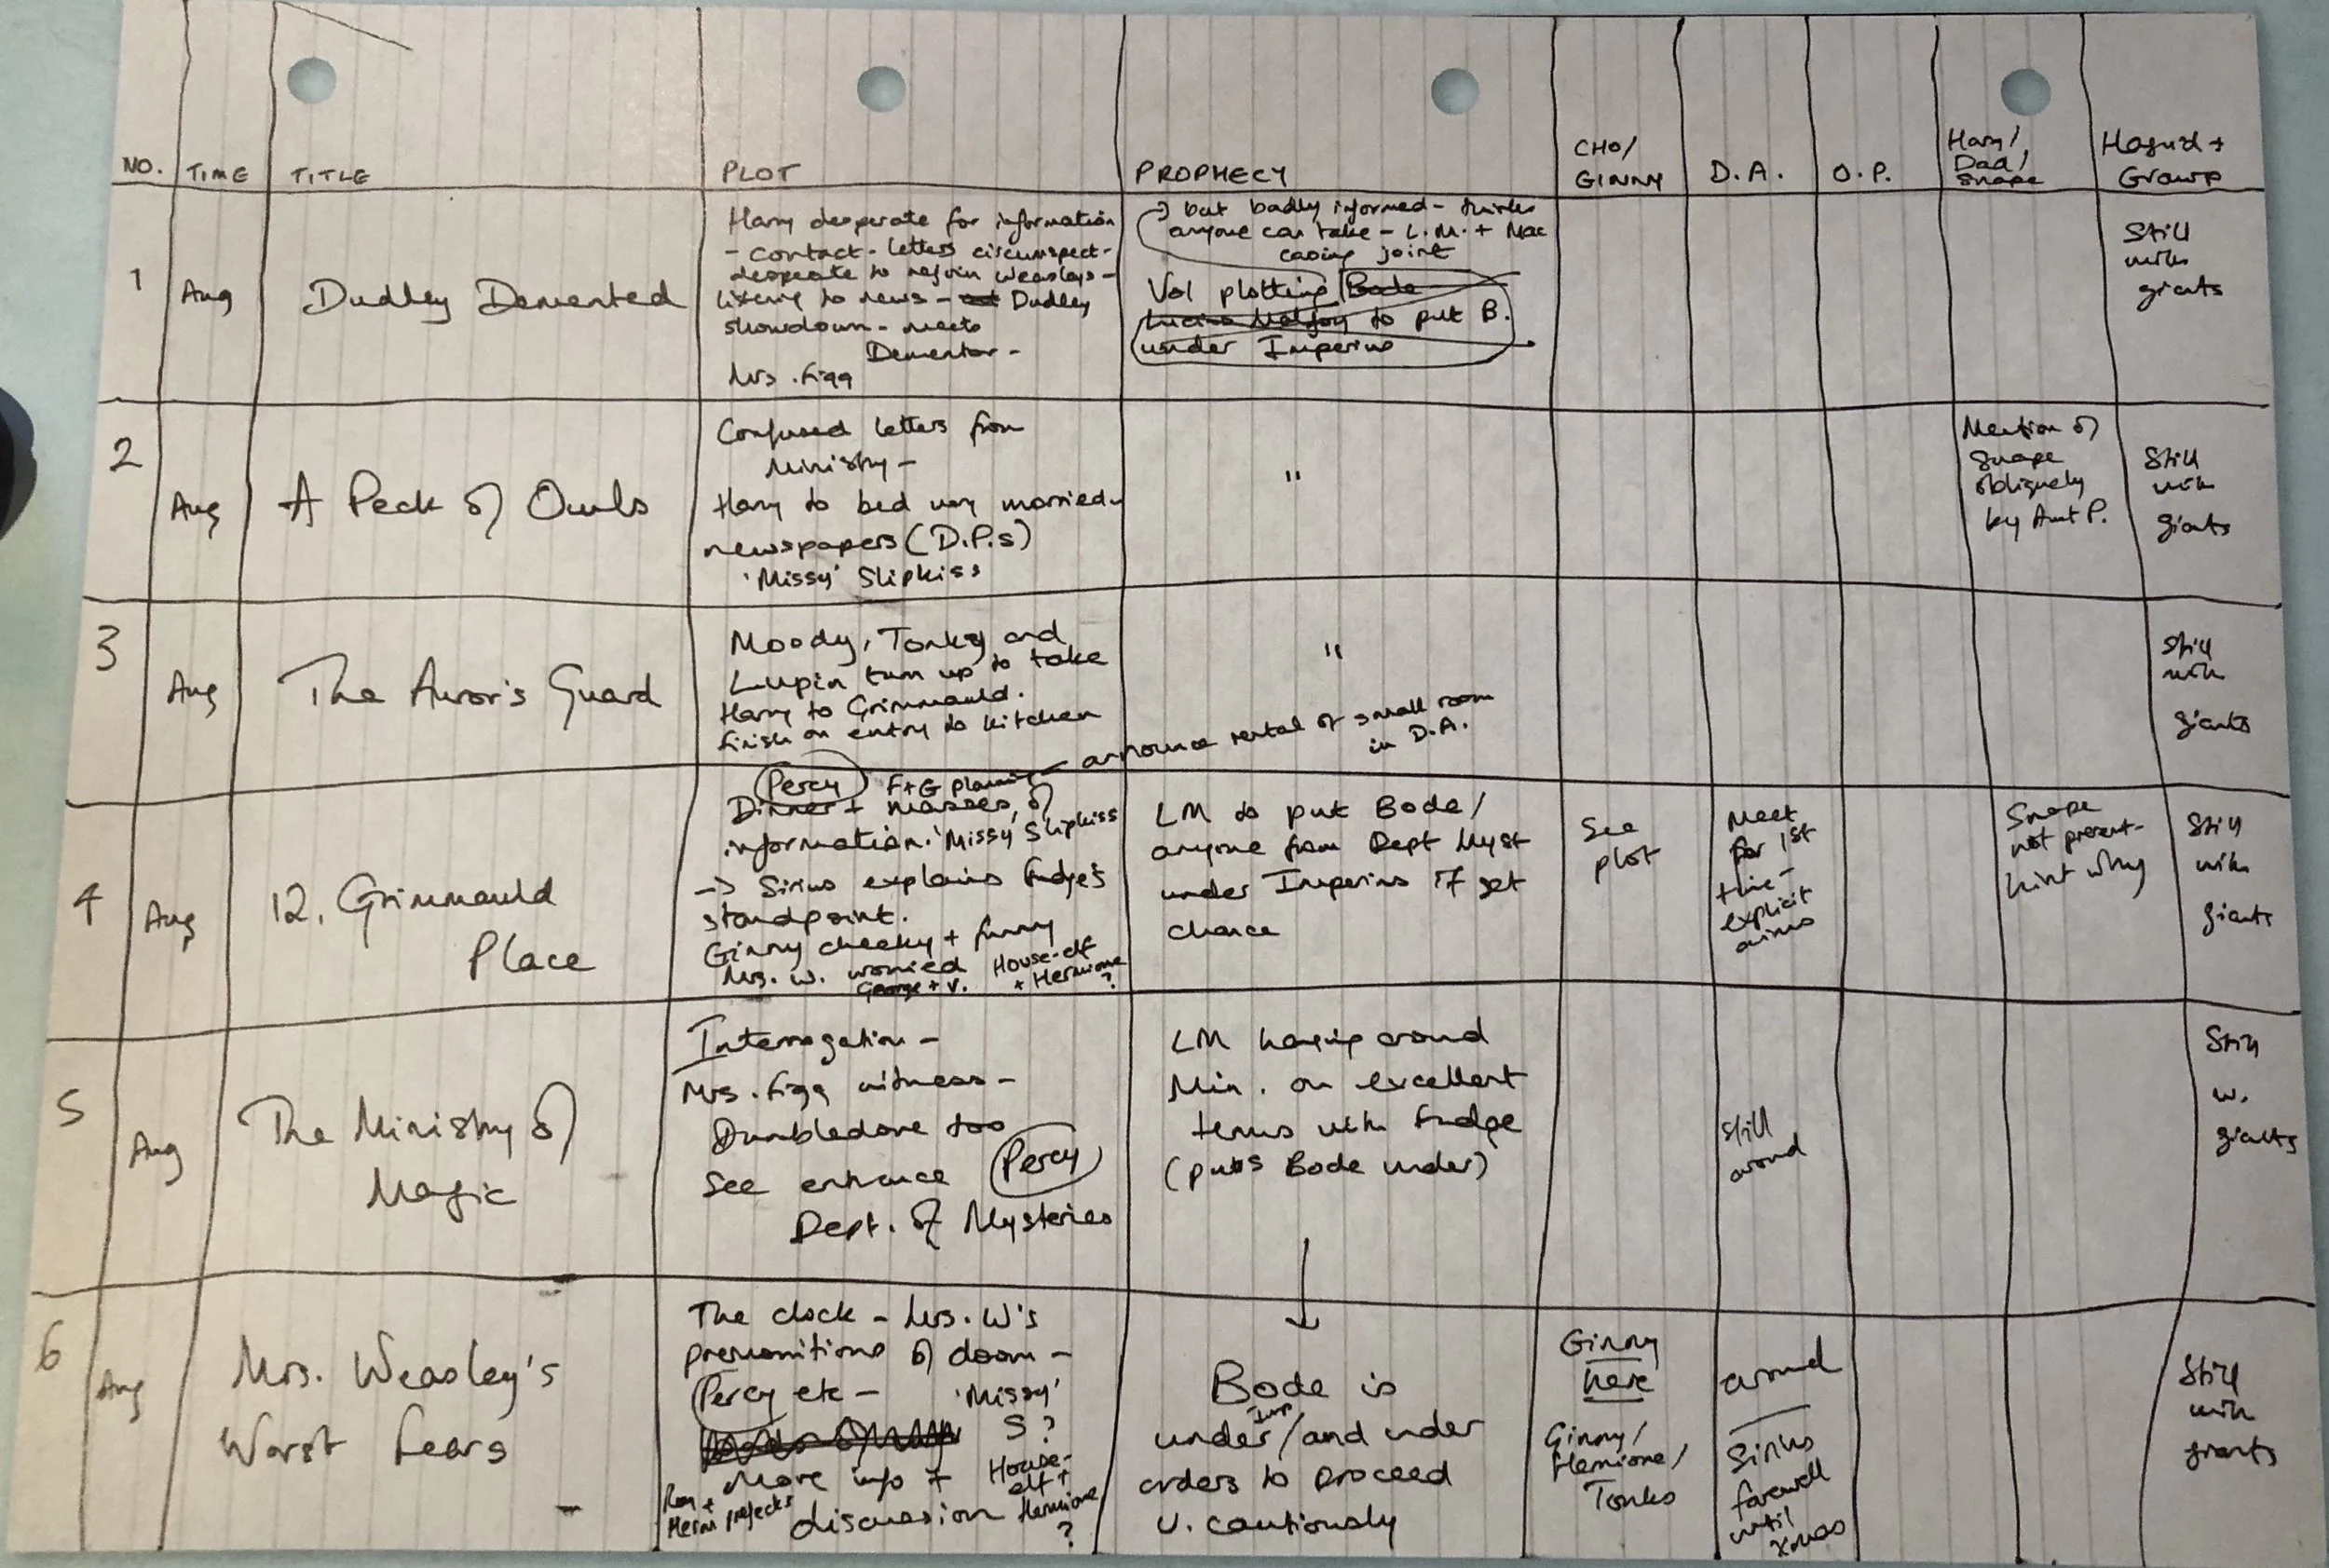 NO.
TIME
TITLE
PLOT
PROPHECY
CHO/
GINNY
D.A.
O.P.
Harry/
Dad/
Snape
Hagrid +
Grawp
1
Aug
Dudley Demented
Harry desperate for information
- contact - letters circumspect -
desperate to rejoin Weasleys -
listening to news - Dudley
showdown - meets
Dementor -
Mrs. Figg
→ but badly informed - thinks
anyone can take - L.M. + Mac
casing joint
Vol plotting Bode
Lucius Malfoy to put B.
under Imperius
Still
with
giants
2
Aug
A Peck of Owls
Confused letters from
Ministry -
Harry to bed very worried -
newspapers (D.P.s)
'Missy' Slipkiss
"
Mention of
Snape
obliquely
by Aunt P.
Still
with
giants
3
Aug
The Auror's Guard
Moody, Tonks and
Lupin turn up to take
Harry to Grimmauld.
finish on entry to kitchen
"
Still
with
giants
4
Aug
12, Grimmauld
Place
Percy F+G planning - announce rental of small room
in D.A.
Dinner + masses of
information. 'Missy' Slipkiss
-> Sirius explains Fudge's
standpoint.
Ginny cheeky + funny
Mrs. W. worried
George + V.
House-elf
+ Hermione
?
LM to put Bode/
anyone from Dept Myst
under Imperius if get
chance
See
plot
Meet
for 1st
time -
explicit
aims
Snape
not present -
hint why
Still
with
giants
5
Aug
The Ministry of
Magic
Interrogation -
Mrs. Figg witness -
Dumbledore too
See entrance Percy
Dept. of Mysteries
LM hanging around
Min. on excellent
terms with Fudge
(puts Bode under)
Still
around
Still
w.
giants
6
Aug
Mrs. Weasley's
Worst Fears
The clock - Mrs. W's
premonitions of doom -
Percy etc - 'Missy'
S?
More info +
discussion
House-
elf +
Hermione
?
Ron +
Herm prefects
Bode is
under Imp/and under
orders to proceed
V. cautiously
Ginny
here
Ginny/
Hermione/
Tonks
around
Sirius
farewell
until
Xmas
Still
with
giants